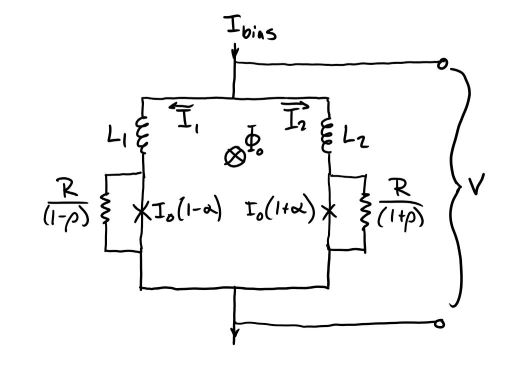 I_bias
I_1 I_2
L_1 Φ_0 L_2
R/(1-ρ) I_0(1-α) I_0(1+α) R/(1+ρ)
V